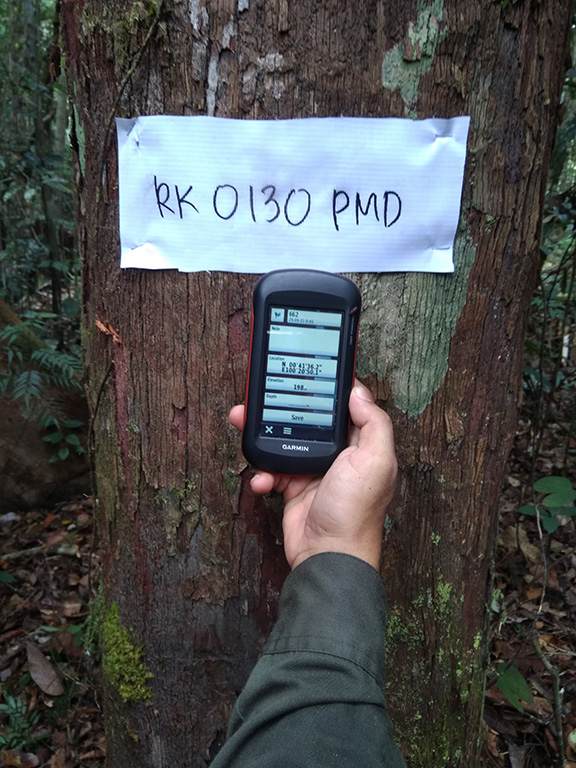 RK 0130 PMD
662
Note
Location
N 00°41'36.2"
E100°20'50.1"
Elevation
198m
Depth
Save
GARMIN